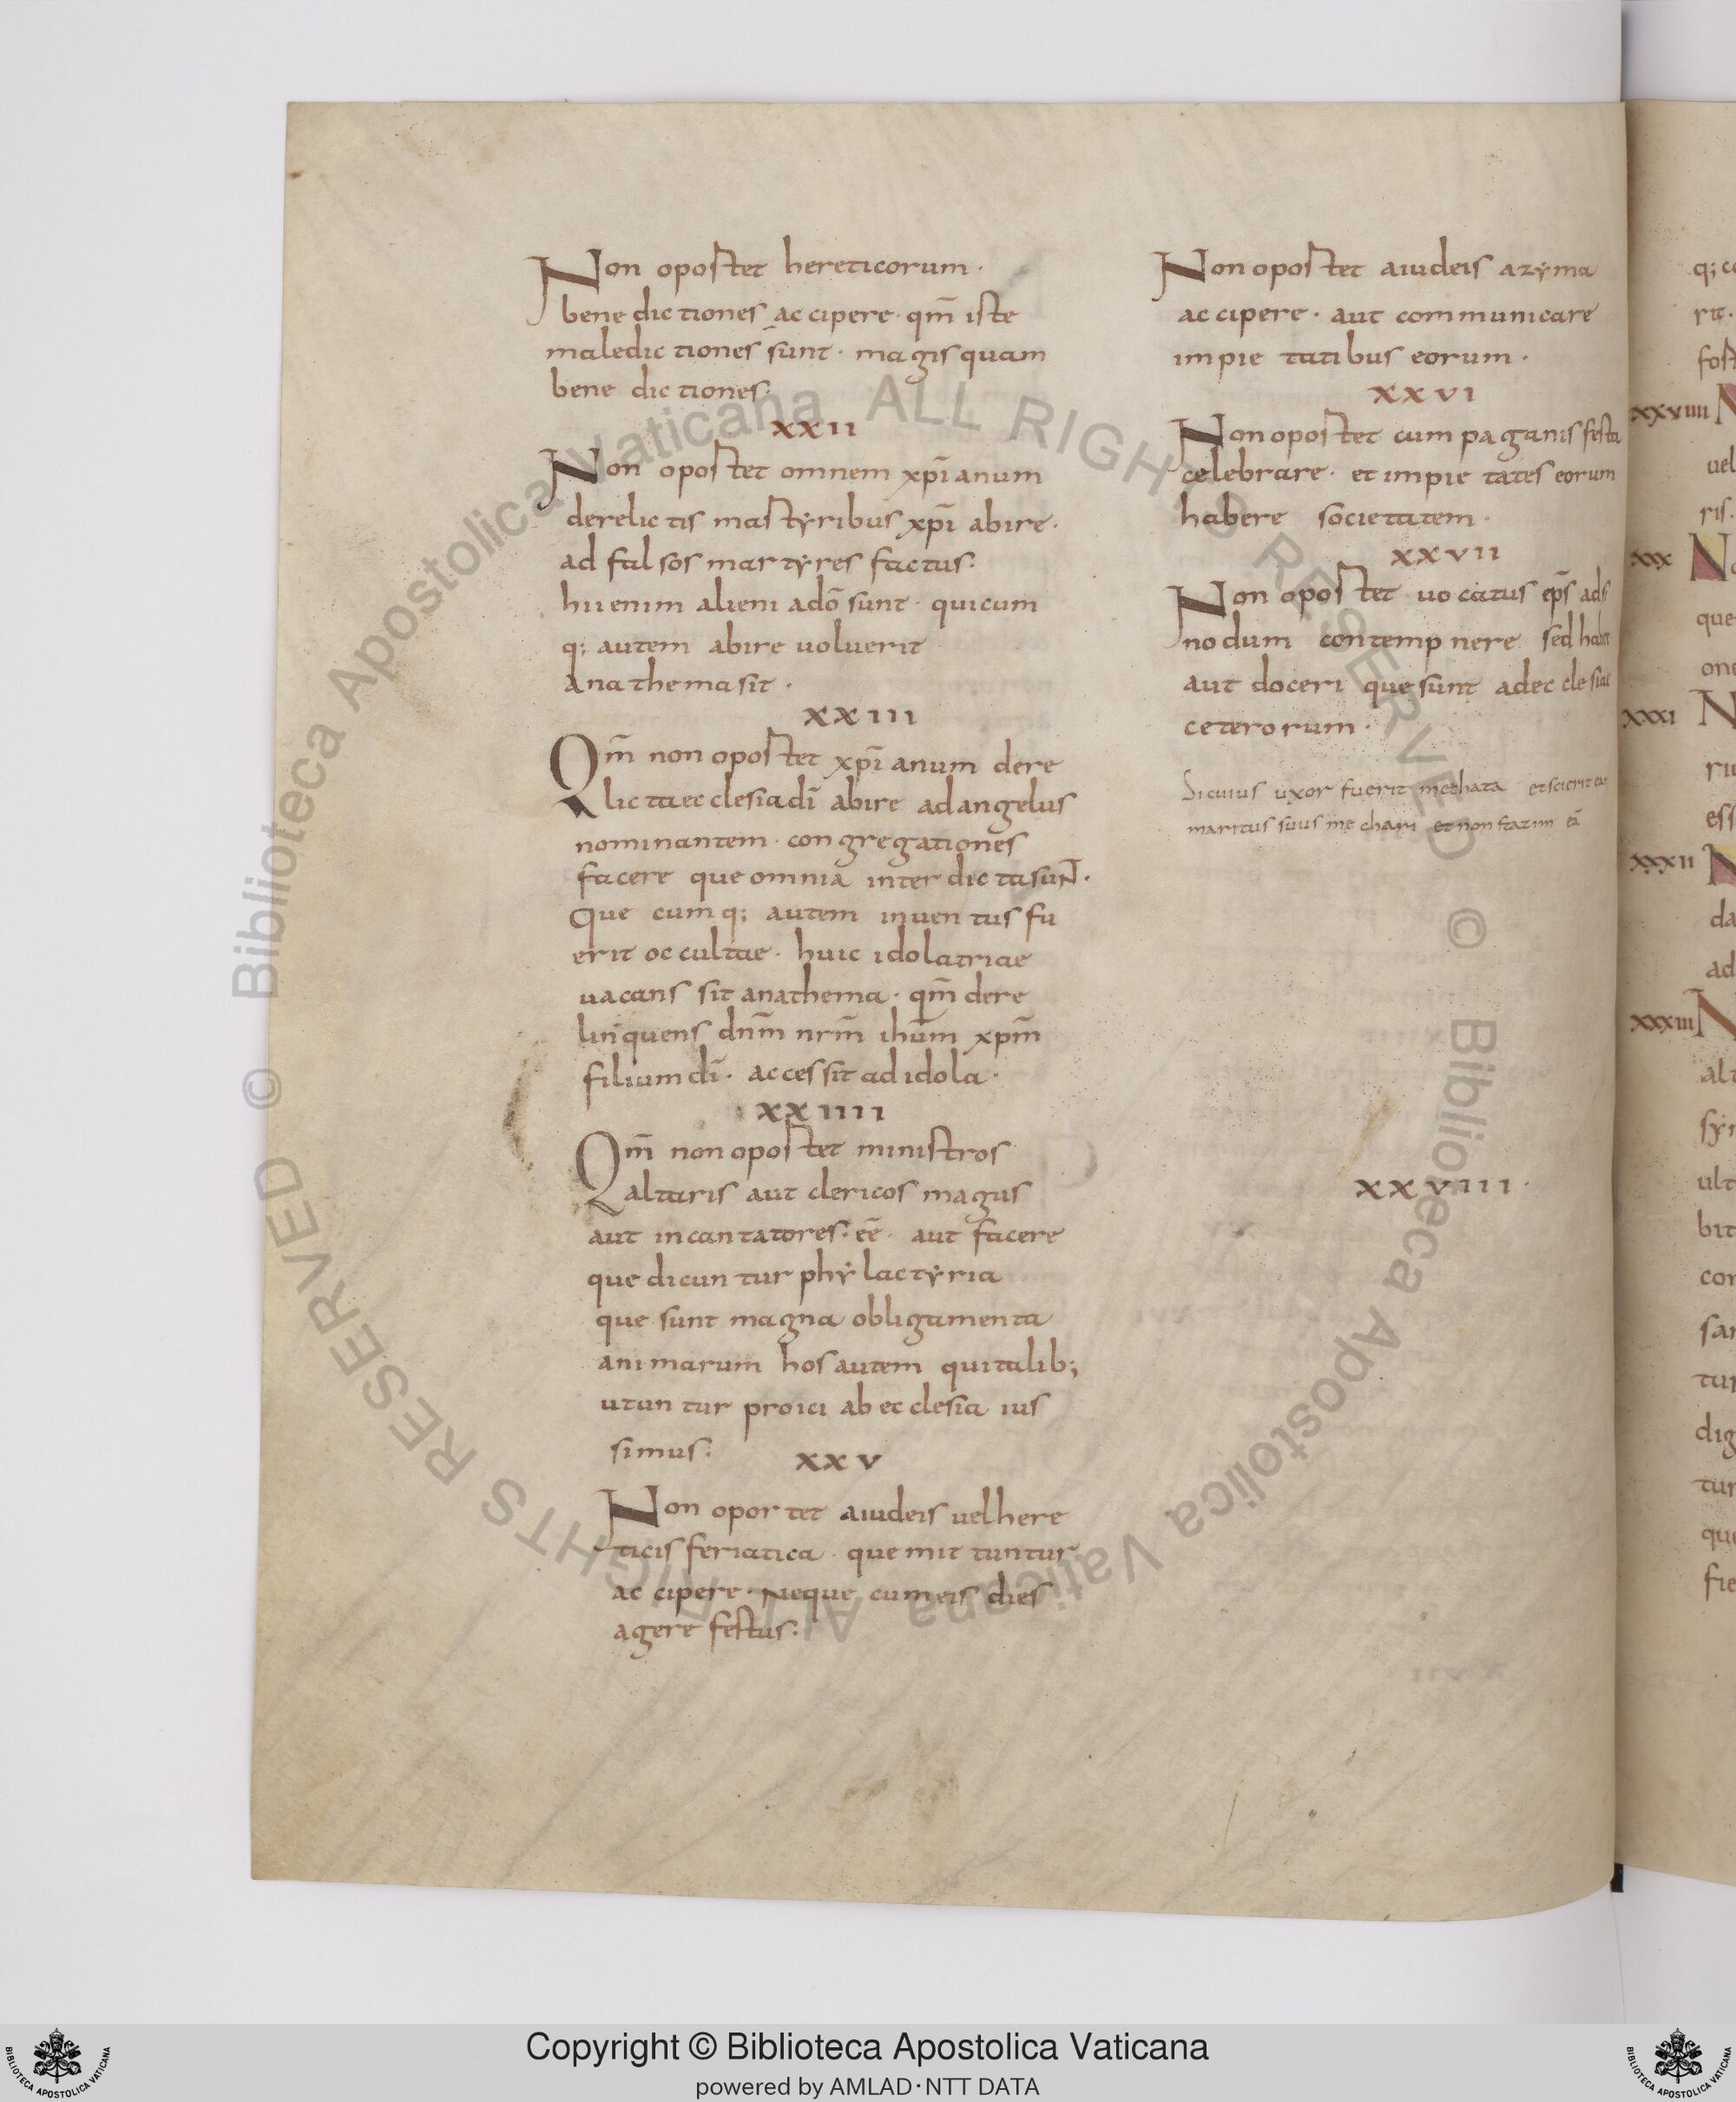 Non oportet hereticorum ·
benedictiones accipere · qm̄ iste
maledictiones sunt · magis quam
benedictiones:
xxii
Non oportet omnem xp̄ianum
derelictis martyribus xp̄i abire ·
ad falsos martyres factus:
hii enim alieni a dō sunt · quicum
q; autem abire uoluerit
anathema sit ·
xxiii
Qm̄ non oportet xp̄ianum dere
licta ecclesia dī abire ad angelus
nominantem · congregationes
facere que omnia interdicta sunt ·
Que cumq; autem inuentus fu
erit occultae · huic idolatriae
uacans sit anathema · qm̄ dere
linquens dn̄m nr̄m ihūm xpm̄
filium dī · accessit ad idola ·
xxiiii
Qm̄ non oportet ministros
altaris aut clericos magus
aut incantatores: eē · aut facere
que dicuntur phylactyria
que sunt magna obligamenta
animarum hos autem qui talib;
utuntur proici ab ecclesia ius
simus:
xxv
Non oportet a iudeis uel here
ticis feriatica · que mittuntur
accipere · neque cum eis dies
agere festus:
Non oportet a iudeis azyma
accipere · aut communicare
impietatibus eorum ·
xxvi
Non oportet cum paganis festa
celebrare · et impietates eorum
habere societatem ·
xxvii
Non oportet uocatus ep̄s ad si
nodum contempnere sed
aut doceri que sunt ad ecclesiae
ceterorum ·
Si cuius uxor fuerit mechata et scierit
maritus suus mechari et non statim eā
xxviii ·
q; c
rit ·
fost
xxviiii N
uel
ris ·
xxx N
que
one
xxxi N
ess
xxxii N
da
ad
xxxiii N
alt
ult
bit
con
tur
dig
tur
que
fie
© Biblioteca Apostolica Vaticana ALL RIGHTS RESERVED © Biblioteca Apostolica Vaticana ALL RIGHTS RESERVED
Copyright © Biblioteca Apostolica Vaticana
powered by AMLAD·NTT DATA
BIBLIOTECA APOSTOLICA VATICANA
BIBLIOTECA APOSTOLICA VATICANA